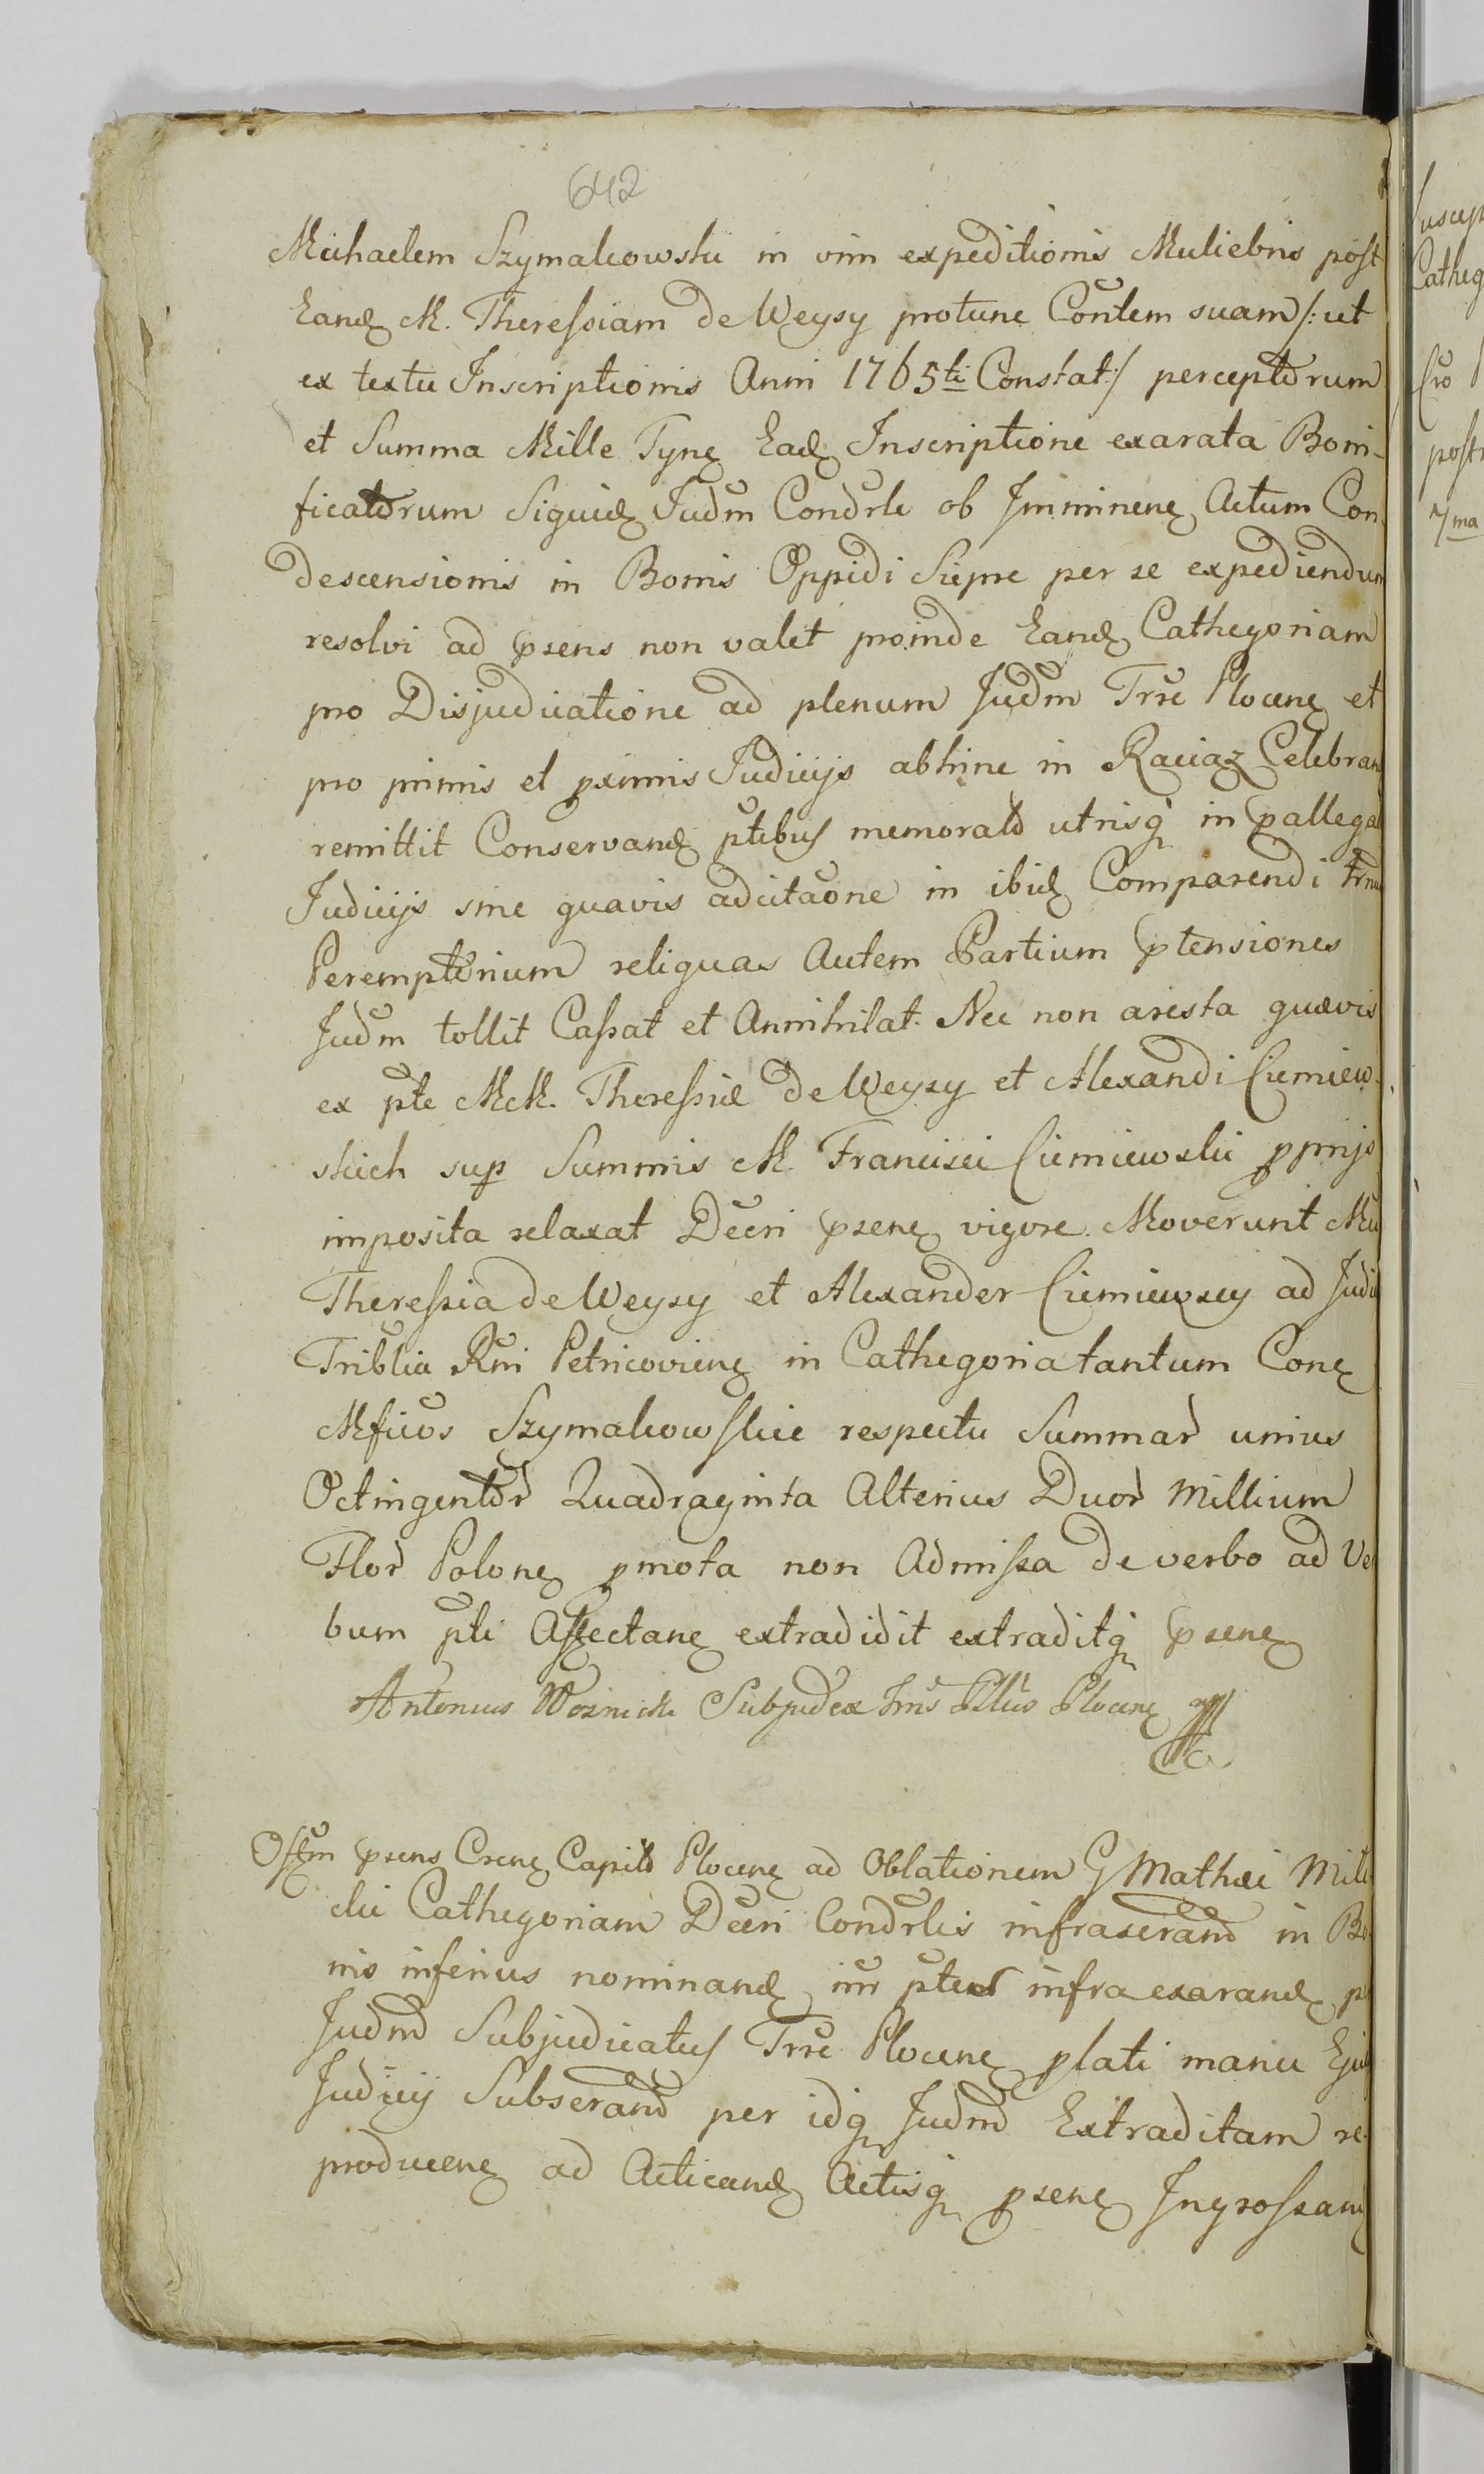 642
Michaelem Szymakowski in vim expeditionis Muliebris post
Eand. M. Theressiam de Weysy protunc Contem suam /: ut
ex textu Inscriptionis Anni 1765ti Constat :/ perceptorum
et Summa Mille Tynf. Ead. Inscriptione exarata Boni-
ficatorum Siquid. Judm Condrle ob Imminen. Actum Con-
descensionis in Bonis Oppidi Siepne per se expediendum
resolvi ad psens non valet proinde Eand. Cathegoriam
pro Disjudicatione ad plenum Judm Trre Plocen. et
pro primis et pximis Judicijs abhinc in Raciąz Celebran
remittit Conservand. ptibus memorato utrisq in pallega
Judicijs sine quavis adcitaone in ibid. Comparendi trnu
Peremptorium reliquas Autem Partium ptensiones
Judm tollit Cassat et Annihilat. Nec non aresta quævis
ex pte MM. Theressiæ de Weysy et Alexandi Ciemiew-
skich sup Summis M. Francisci Ciemiewski pprijs
imposita relaxat Decri psen. vigore. Moverunt
Theressia de Weysy et Alexander Ciemiewscy ad Judi
Triblia Rni Petricovien. in Cathegoria tantum Con.
Mficos Szymakowskie respectu Summar unius
Octingentor Quadraginta Alterius Duor Millium
Flor Polon. pmota non Admissa de verbo ad Ve
bum pti Affectan. extradidit extraditq psen.
Antonius Woznicki Subjudex Plocen.
Ostm psens Cren. Capito Plocen. ad Oblationem G Mathæi
Cathegoriam Decri Condrlis infraserand in Bo
nis inferius nominand. inr ptes infra exarand. p
Judm Subjudicatus Trre Plocen. plati manu Ejusd
Judicij Subserand per idq Judm Extraditam re-
producen. ad Acticand. Actisq psen. Ingrossand
Suscep
Catheg
post
7ma